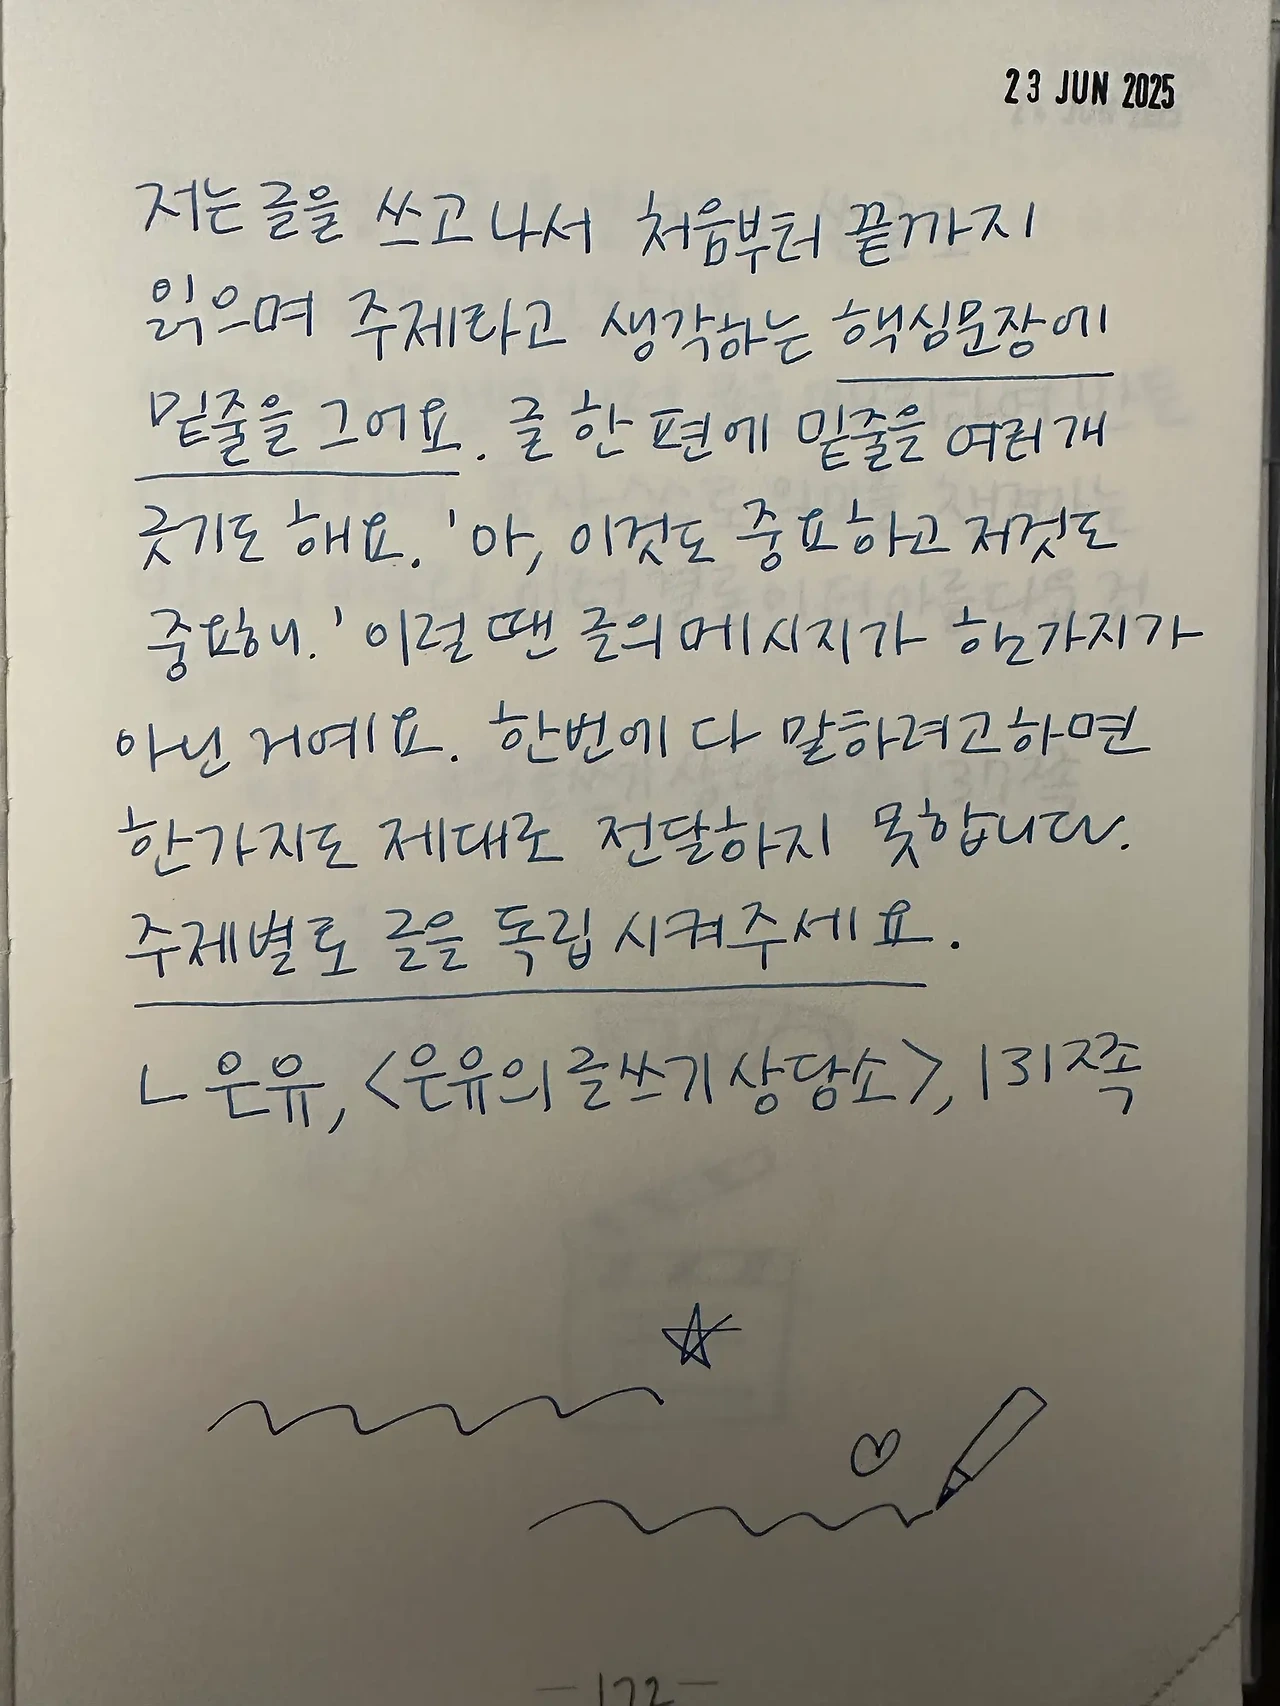 23 JUN 2025
저는 글을 쓰고 나서 처음부터 끝까지
읽으며 주제라고 생각하는 핵심문장에
밑줄을 그어요. 글 한 편에 밑줄을 여러개
긋기도 해요. '아, 이것도 중요하고 저것도
중요해.' 이럴 땐 글의 메시지가 한가지가
아닌 거예요. 한번에 다 말하려고하면
한가지도 제대로 전달하지 못합니다.
주제별로 글을 독립시켜주세요.
ㄴ 은유, <은유의 글쓰기 상담소>, 131쪽
-172-